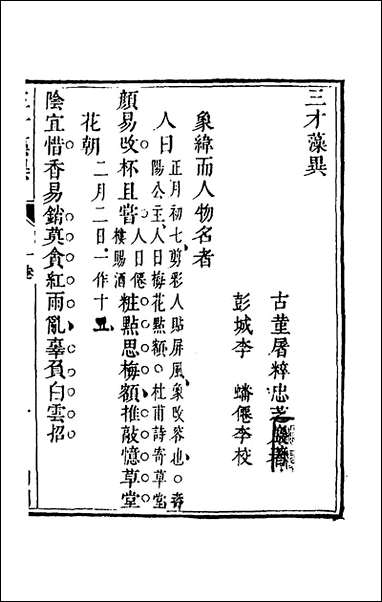 三才藻異
古董屠粹忠芝巖著
彭城李蟠僊李校
象緯而人物名者
人日
正月初七剪彩人貼屏風象改容也壽
陽公主人日梅花點額杜甫詩寄草堂
人日僊
樓賜酒
顏易改杯且嘗粧點思梅額推敲憶草堂
花朝
二月二日一作十五
陰宜惜香易銷莫貪紅雨亂辜負白雲招
三才藻異
卷一